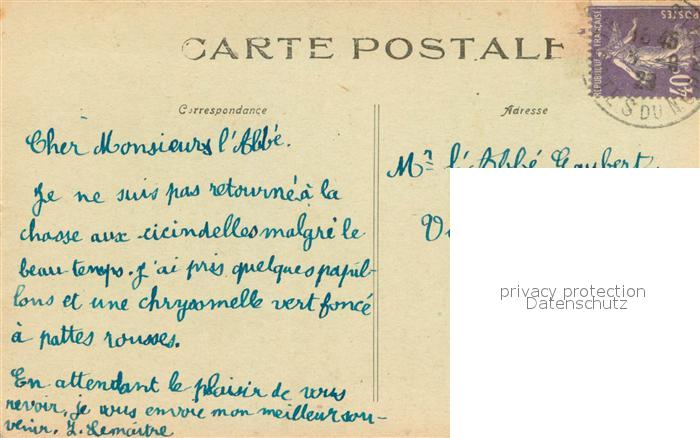 CARTE POSTALE
Correspondance
Adresse
REPUBLIQUE FRANÇAISE
POSTES
40c
15 45
8
29
S DU
Cher Monsieurs l'Abbé.
Je ne suis pas retourné à la
chasse aux cicindelles malgré le
beau temps. J'ai pris quelques papil-
lons et une chrysomelle vert foncé
à pattes rousses.
En attendant le plaisir de vous
revoir, je vous envoie mon meilleur sou-
venir. J. Lemaître
Mr l'Abbé Goubert
privacy protection
Datenschutz